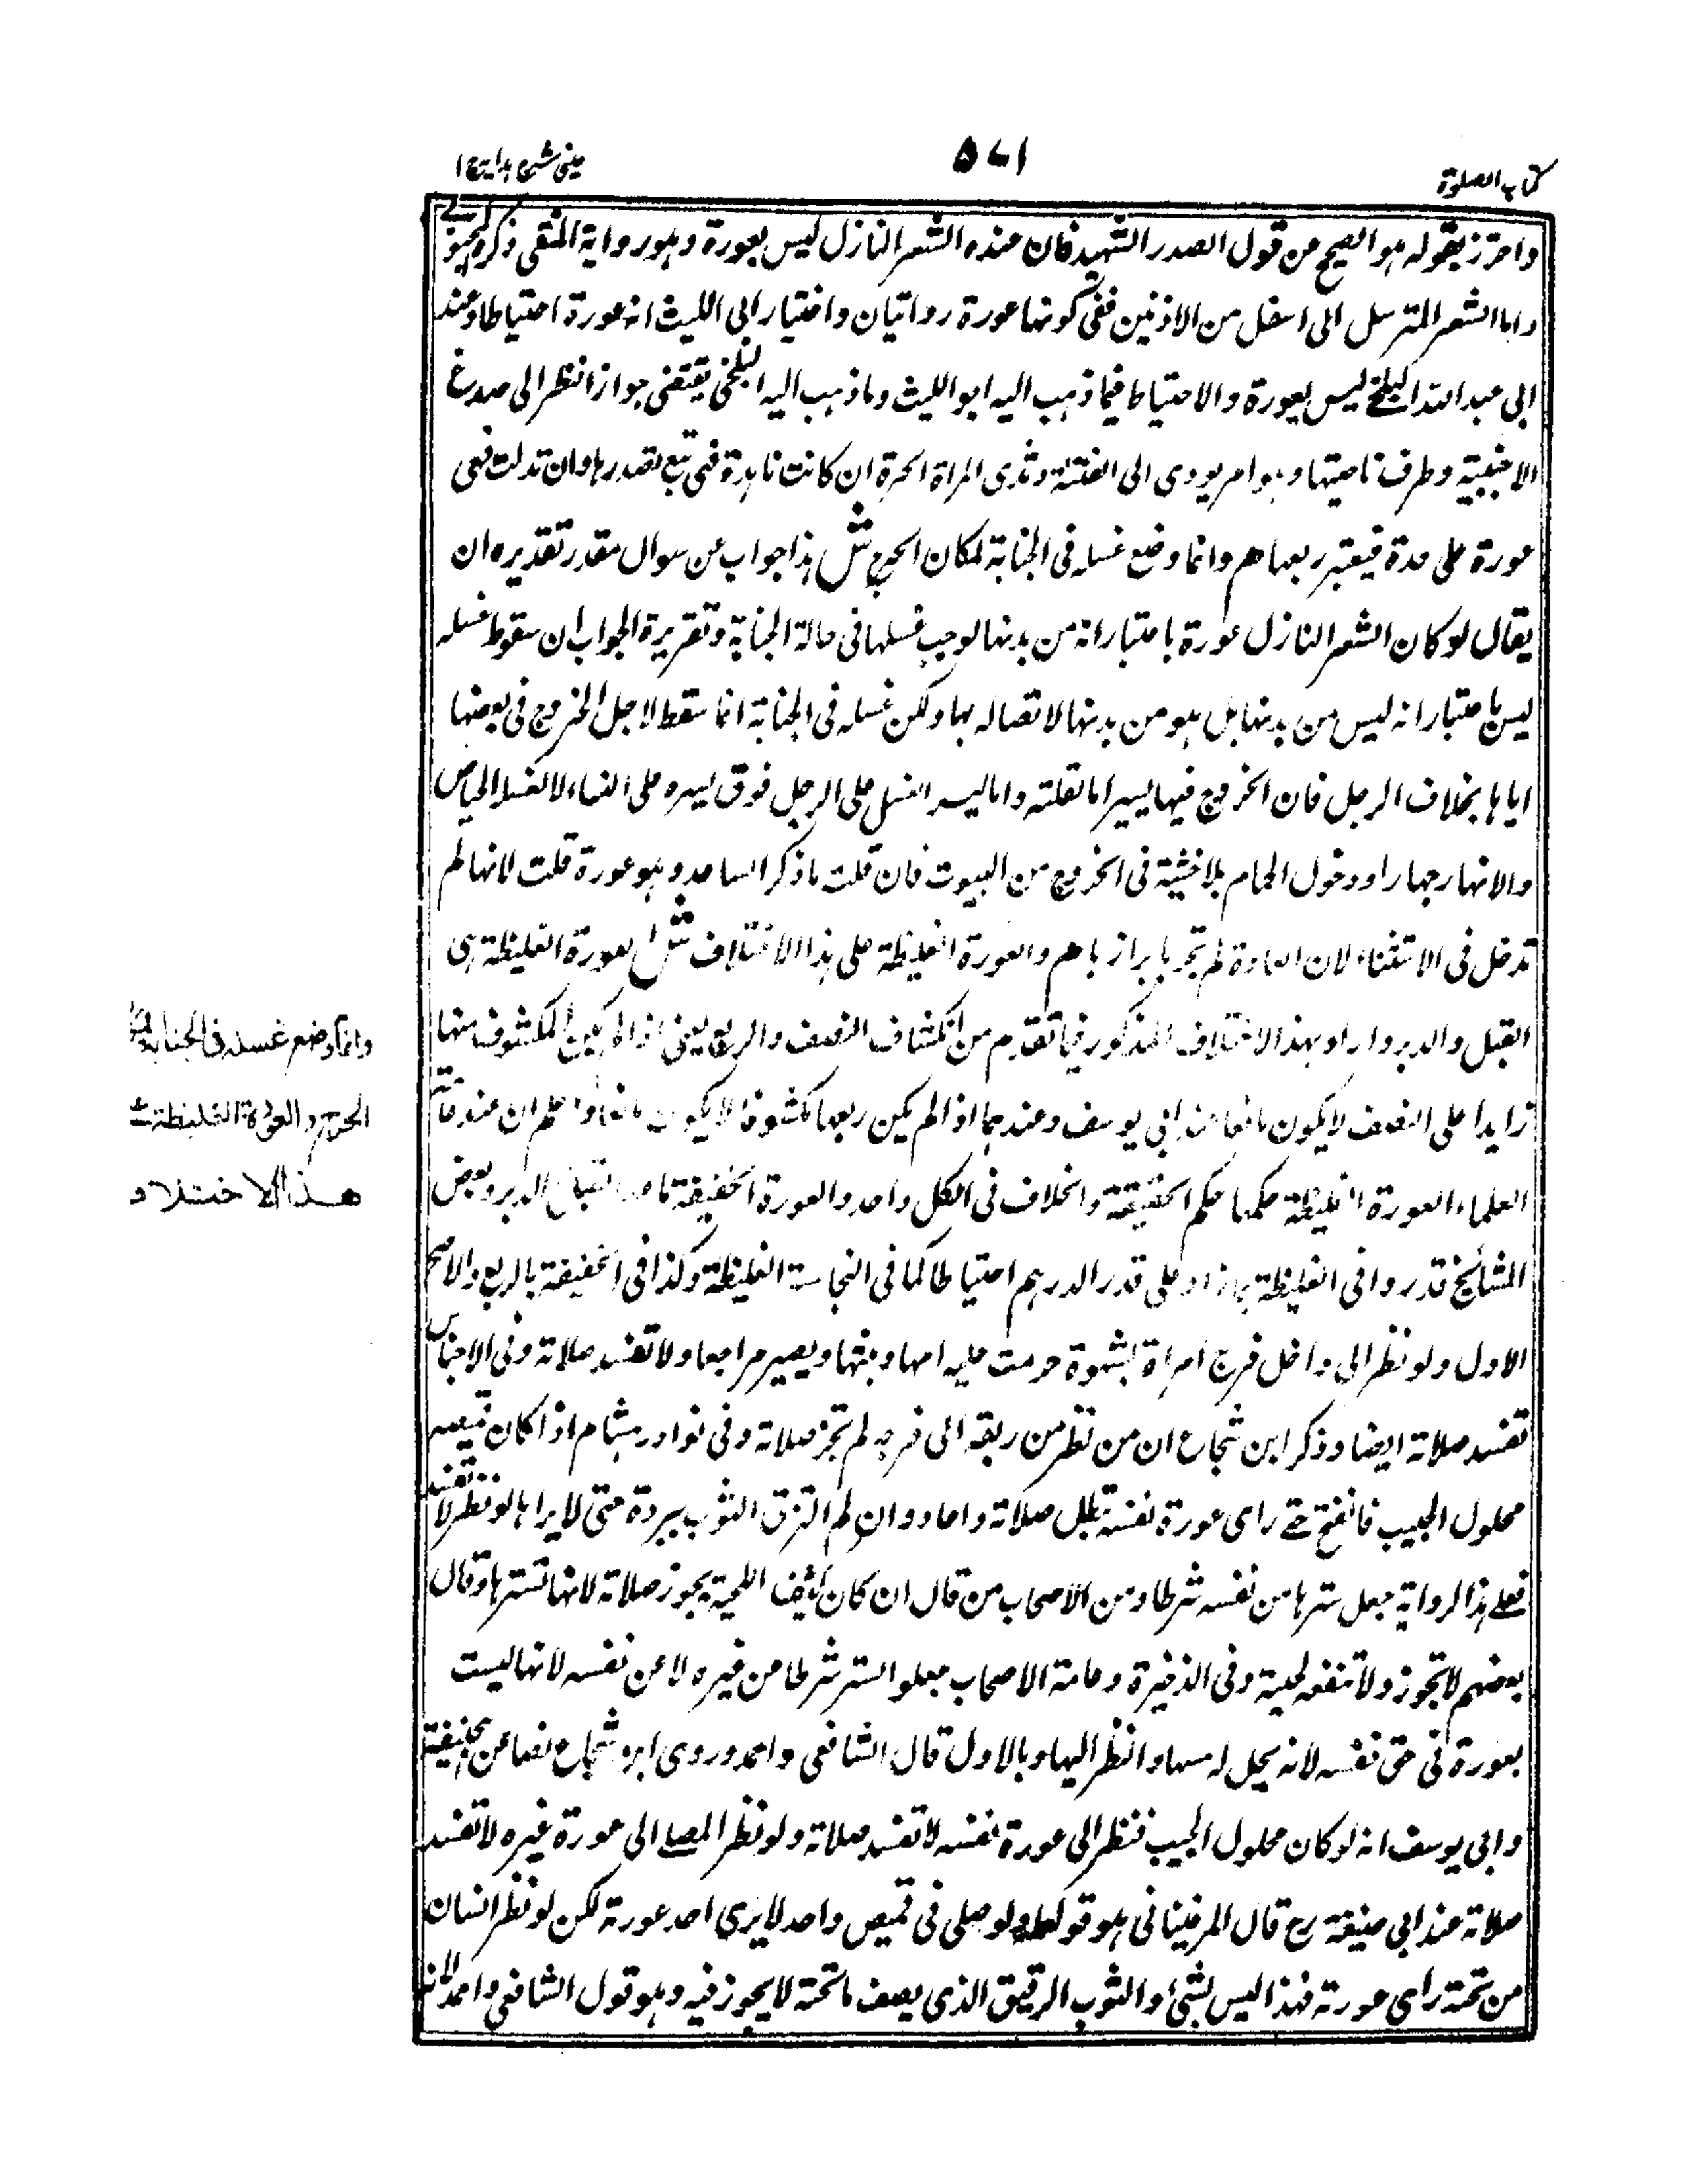 كتاب الصلوة
٥٧١
عینی شرح هدایة ج١
واحترز بقوله هو الصحيح من قول الصدر الشهيد فان عنده الشعر النازل ليس بعورة وهو رواية المنتقى ذكره
واما الشعر المترسل الى اسفل من الاذنين ففى كونها عورة روايتان واختيار ابى الليث انه عورة احتياطا وعند
ابى عبد الله البلخى ليس بعورة والاحتياط فيما ذهب اليه ابو الليث وما ذهب اليه البلخى يقتضى جواز النظر الى صدغ
الاجنبية وطرف ناصيتها وهو امر يودى الى الفتنة وثدى المراة الحرة ان كانت ناهدة فهى تبع لصدرها وان تدلت فهى
عورة على حدة فيعتبر ربعها هم وانما وضع غسله فى الجنابة لمكان الحرج ش هذا جواب عن سوال مقدر تقديره ان
يقال لو كان الشعر النازل عورة باعتبار انه من بدنها لوجب غسلها فى حالة الجنابة وتقريرة الجواب ان سقوط غسله
ليس باعتبار انه ليس من بدنها بل هو من بدنها لاتصاله بها ولكن غسله فى الجنابة انما سقط لاجل الخروج فى بعضها
اياها بخلاف الرجل فان الخروج فيها يسير اما لقلته واما ليسر الغسل على الرجل فوق يسره على النساء
والانهار جهارا ودخول الحمام بلا خشية فى الخروج من البيوت فان قلت ما ذكر الساعد وهو عورة قلت لانها لم
تدخل فى الاستثناء لان العادة لم تجر بابرازها هم والعورة الغليظة على هذا الاختلاف ش العورة الغليظة هى
القبل والدبر واراد بهذا الاختلاف المذكور فيما تقدم من انكشاف النصف والربع يعنى اذا لم يكن المكشوف منها
زايدا على النصف لا يكون مانعا عند ابى يوسف وعندهما اذا لم يكن ربعها مكشوفا لا يكون مانعا واعلم ان عند عامة
العلماء العورة الغليظة حكمها حكم الخفيفة والخلاف فى الكل واحد والعورة الخفيفة ما عدا القبل والدبر وبعض
المشائخ قدروا فى الغليظة بما زاد على قدر الدرهم احتياطا كما فى النجاسة الغليظة وكذا فى الخفيفة بالربع والاصح
الاول ولو نظر الى داخل فرج امراة بشهوة حرمت عليه امها وبنتها ويصير مراجعا ولا تفسد صلاته وفى الاجناس
تفسد صلاته ايضا وذكر ابن شجاع ان من نظر من زيقه الى فرجه لم تجز صلاته وفى نوادر هشام اذا كان قميصه
محلول الجيب فانفتح حتے راى عورة نفسه تبطل صلاته واعاد وان لم التزق الثوب ببردة حتى لا يراها لو نظر لا تفسد
فعلے هذا الرواية جعل سترها من نفسه شرطا ومن الاصحاب من قال ان كان كثيف اللحية يجوز صلاته لانها تسترها وقال
بعضهم لا تجوز ولا تنفعه لحية وفى الذخيرة وعامة الاصحاب جعلوا الستر شرطا من غيره لا عن نفسه لانها ليست
بعورة فى حق نفسه لانه يحل له مسها والنظر اليها وبالاول قال الشافعى واحمد وروى ابن شجاع نصا عن ابى حنيفة
وابى يوسف انه لو كان محلول الجيب فنظر الى عورة نفسه لا تفسد صلاته ولو نظر المصلے الى عورة غيره لا تفسد
صلاته عند ابى حنيفة رح قال المرغينانى هو قولهما ولو صلى فى قميص واحد لا يرى احد عورته لكن لو نظر انسان
من تحته راى عورته فهذا ليس بشئ والثوب الرقيق الذى يصف ما تحته لا يجوز فيه وهو قول الشافعى واحمد لانه
وانما وضع غسله فى الجنابة
الحرج والعورة الغليظة
هذا الاختلاف